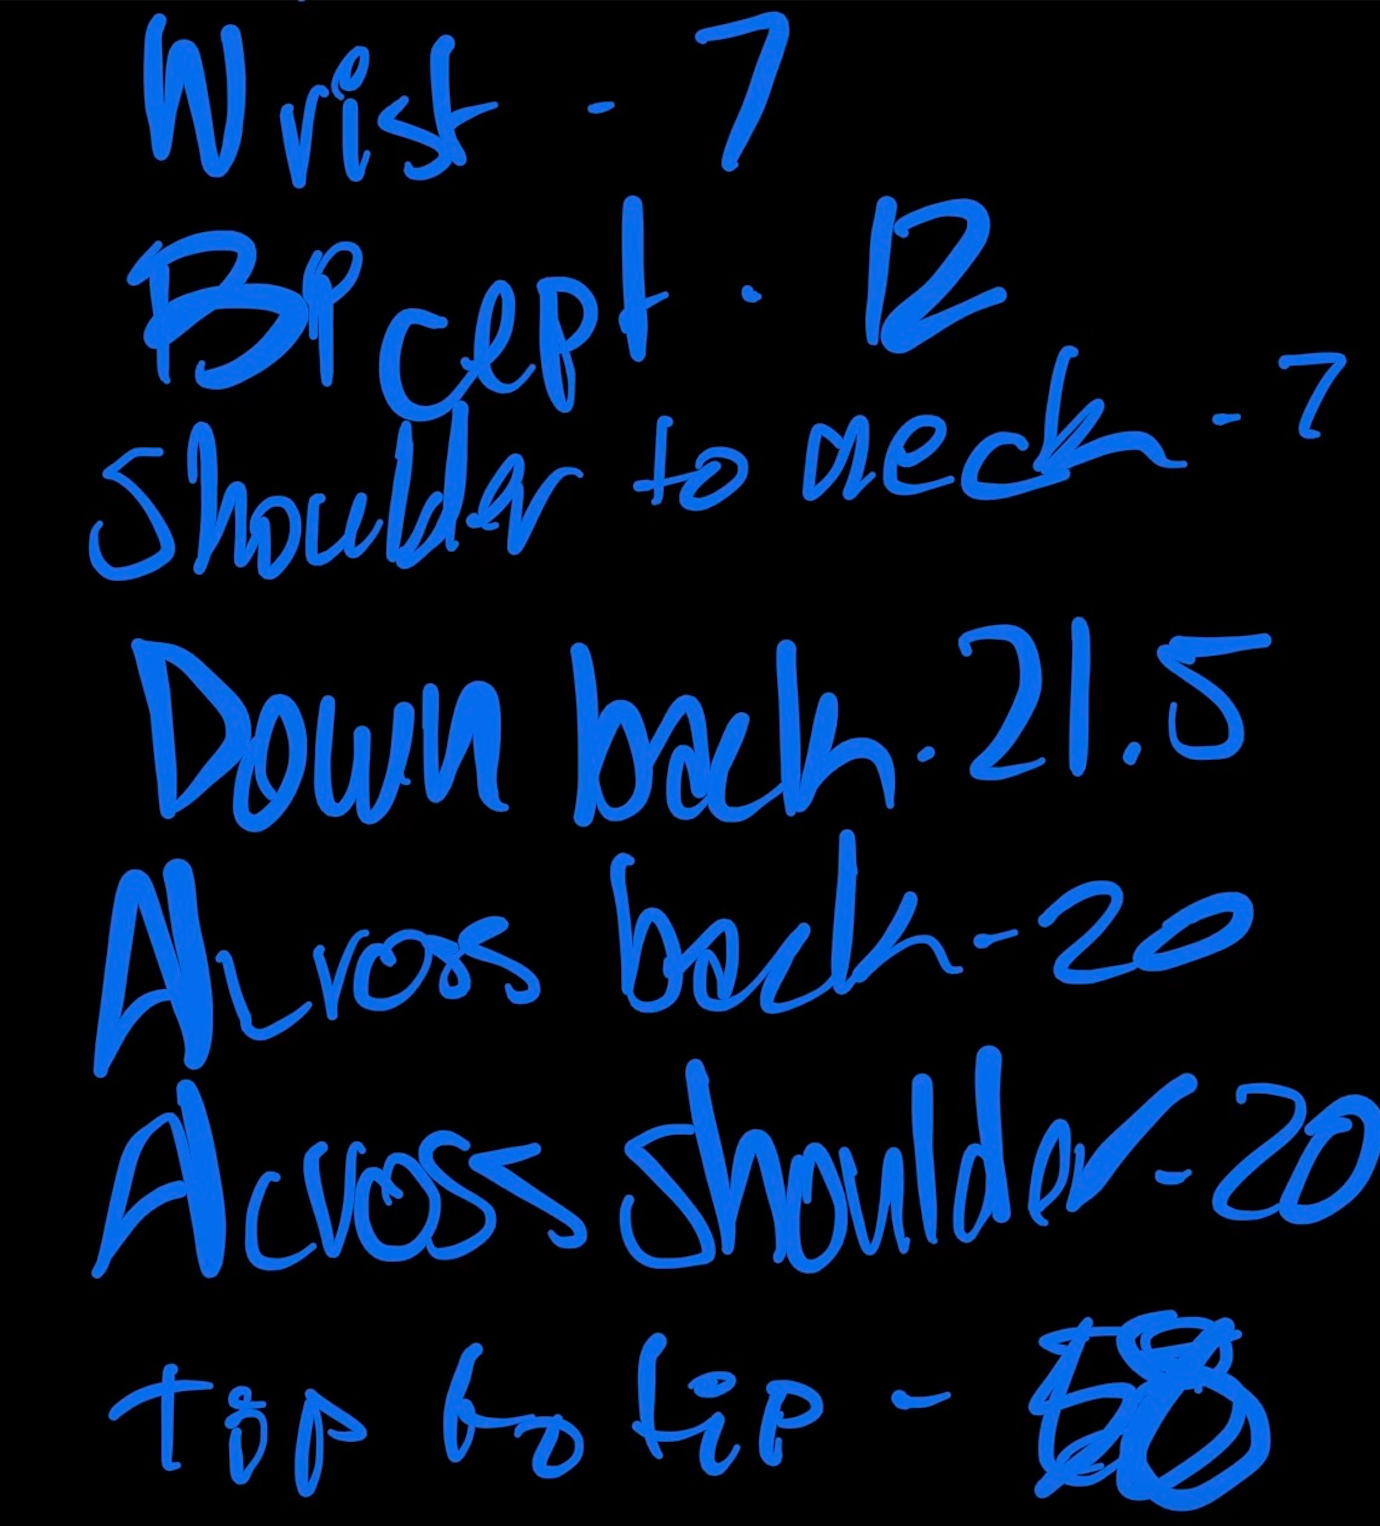 Wrist - 7
Bicept . 12
Shoulder to neck - 7
Down back . 21.5
Across back - 20
Across shoulder - 20
Tip to tip -